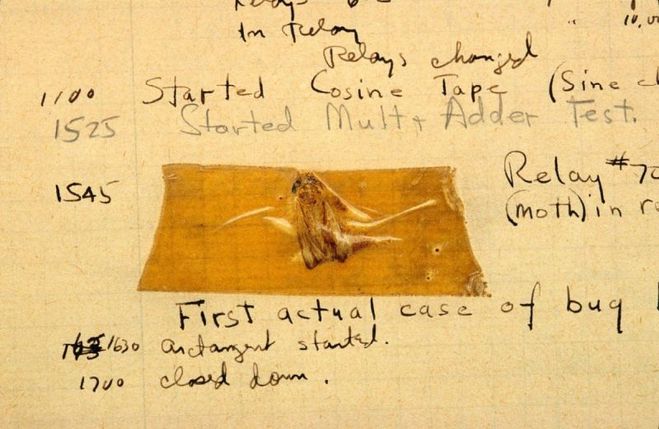 Relays
10,00
In Relay
Relays changed
1100 Started Cosine Tape (Sine c
1525 Started Mult+ Adder Test.
1545 Relay #70
(moth) in r
First actual case of bug b
1630 arctangent started.
1700 closed down.